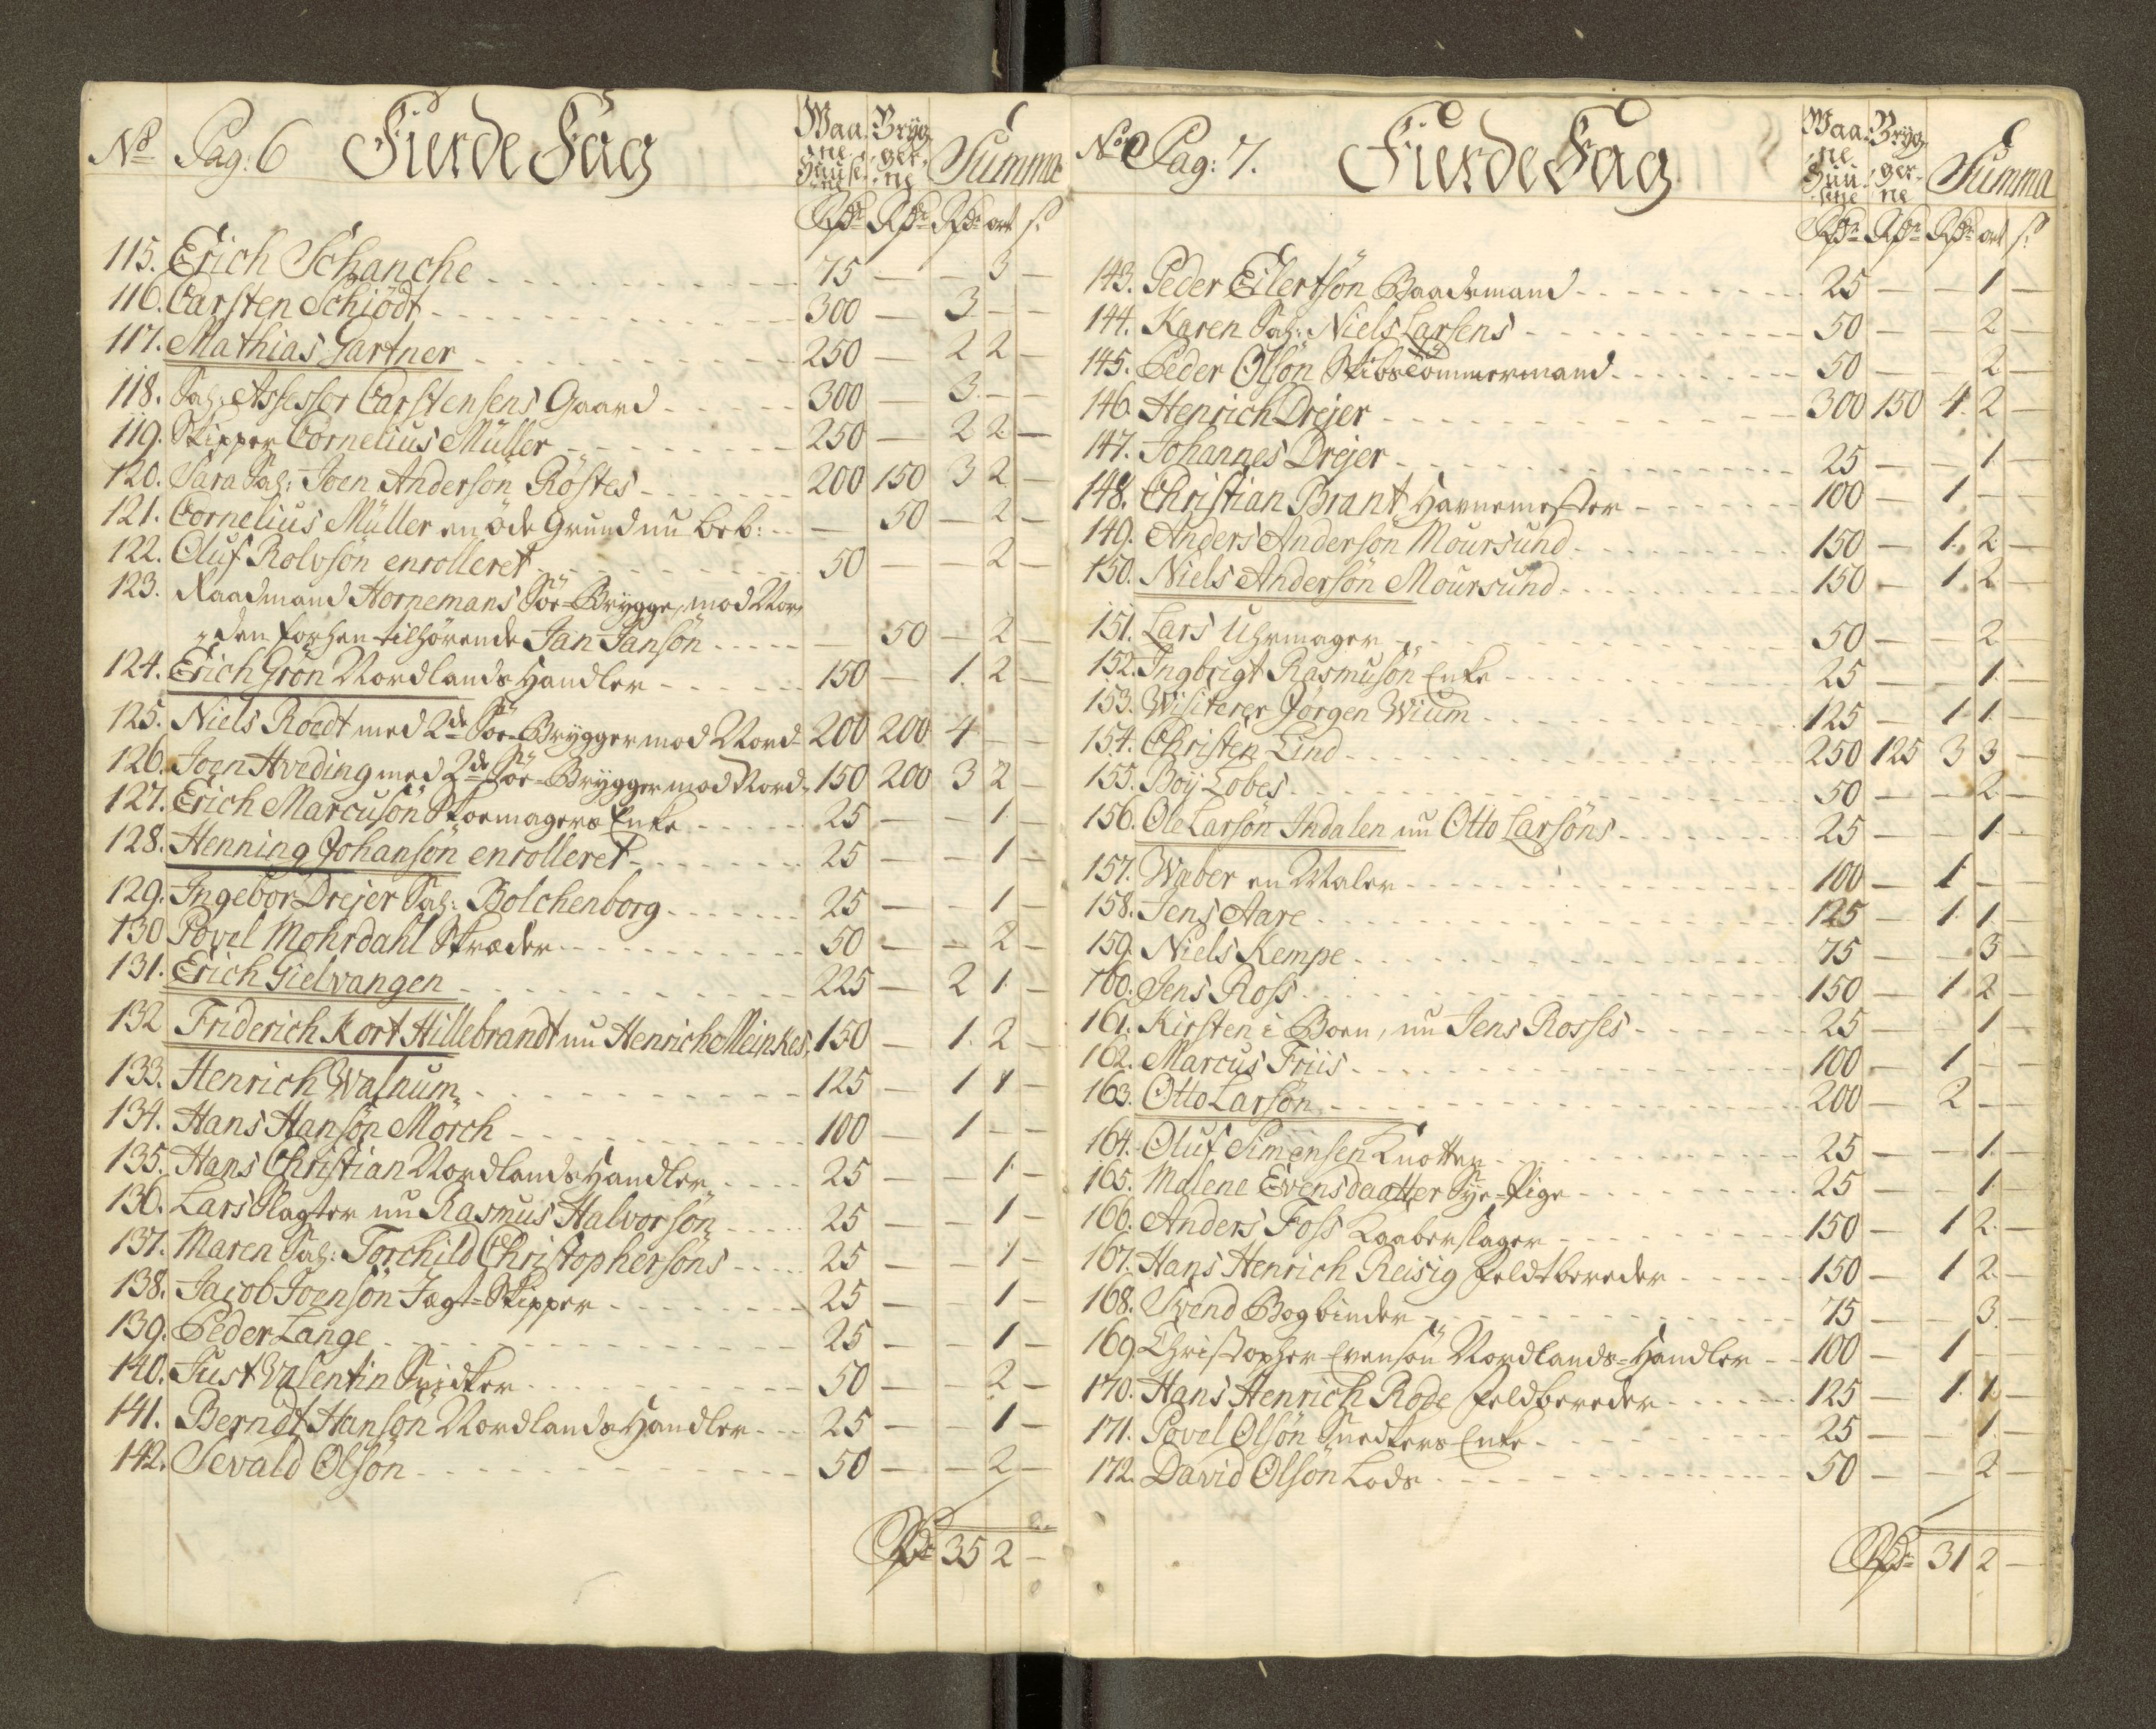 No Pag: 6 Fierde Fag Waa- Bryg- Summa
ne ger-
Huuse- ne
ne
Rdr Rdr Rdr ort s:
115. Erich Schanche 75 — — 3 —
116. Carsten Schiödt 300 — 3 — —
117. Mathias Gartner 250 — 2 2 —
118. Sal: Assessor Carstensens Gaard 300 — 3 — —
119. Skipper Cornelius Müller 250 — 2 2 —
120. Sara Sal: Joen Andersön Röstes 200 150 3 2 —
121. Cornelius Müller en öde Grund nu beb: — 50 — 2 —
122. Oluf Rolvsön enrolleret 50 — — 2 —
123. Raadmand Hornemans Söe-Brygge, mod Nor-
den forhen tilhörende Jan Jansön — 50 — 2 —
124. Erich Grön Nordlands Handler 150 — 1 2 —
125. Niels Roedt med 2de Söe-Brygger mod Nord 200 200 4 — —
126. Joen Hveding med 2de Söe-Brygger mod Nord 150 200 3 2 —
127. Erich Marcusön Skoemagers Enke 25 — — 1 —
128. Henning Johansön enrolleret 25 — — 1 —
129. Ingebor Drejer Sal: Bolchenborg 25 — — 1 —
130 Povel Mohrdahl Skræder 50 — — 2 —
131. Erich Gielvangen 225 — 2 1 —
132 Friderich Kort Hillebrandt nu Henrich Meinkes 150 — 1 2 —
133. Henrich Walnum 125 — 1 1 —
134. Hans Hansön Mörch 100 — 1 — —
135. Hans Christian Nordlands Handler 25 — — 1 —
136. Lars Slagter nu Rasmus Halvorsön 25 — — 1 —
137. Maren Sal: Torchild Christophersöns 25 — — 1 —
138. Jacob Joensön Jagt-Skipper 25 — — 1 —
139. Peder Lange 25 — — 1 —
140. Just Valentin Snidker 50 — — 2 —
141. Berndt Hansön Nordlands Handler 25 — — 1 —
142. Sevald Olsön 50 — — 2 —
Rdr 35 2 —
No Pag: 7. Fierde Fag Waa- Bryg- Summa
ne ger-
Huu- ne
sene
Rdr Rdr Rdr ort s:
143. Peder Eilertsön Baadsmand 25 — — 1 —
144. Karen Sal: Niels Larsens 50 — — 2 —
145. Peder Olsön Skibstömmermand 50 — — 2 —
146. Henrich Drejer 300 150 4 2 —
147. Johannes Drejer 25 — — 1 —
148. Christian Brant Havnemester 100 — 1 — —
149. Anders Andersön Moursund 150 — 1 2 —
150. Niels Andersön Moursund 150 — 1 2 —
151. Lars Uhrmager 50 — — 2 —
152. Ingbrigt Rasmusön Enke 25 — — 1 —
153. Wisiterer Jörgen Wium 125 — 1 1 —
154. Christen Lind 250 125 3 3 —
155. Boy Lobes 50 — — 2 —
156. Ole Larsön Indalen nu Otto Larsöns 25 — — 1 —
157. Waber en Maler 100 — 1 — —
158. Jens Aare 125 — 1 1 —
159. Niels Kempe 75 — — 3 —
160. Jens Ross 150 — 1 2 —
161. Kirsten i Boen, nu Jens Rosses 25 — — 1 —
162. Marcus Friis 100 — 1 — —
163. Otto Larsön 200 — 2 — —
164. Oluf Simensen Knotten 25 — — 1 —
165. Malene Evensdaatter Sye-Pige 25 — — 1 —
166. Anders Foss Kaaberslager 150 — 1 2 —
167. Hans Henrich Reisig Feldtbereder 150 — 1 2 —
168. Svend Bogbinder 75 — — 3 —
169. Christopher Evensön Nordlands-Handler 100 — 1 — —
170. Hans Henrich Rode Feldbereder 125 — 1 1 —
171. Povel Olsön Snedkers Enke 25 — — 1 —
172. David Olsön Lods 50 — — 2 —
Rdr 31 2 —